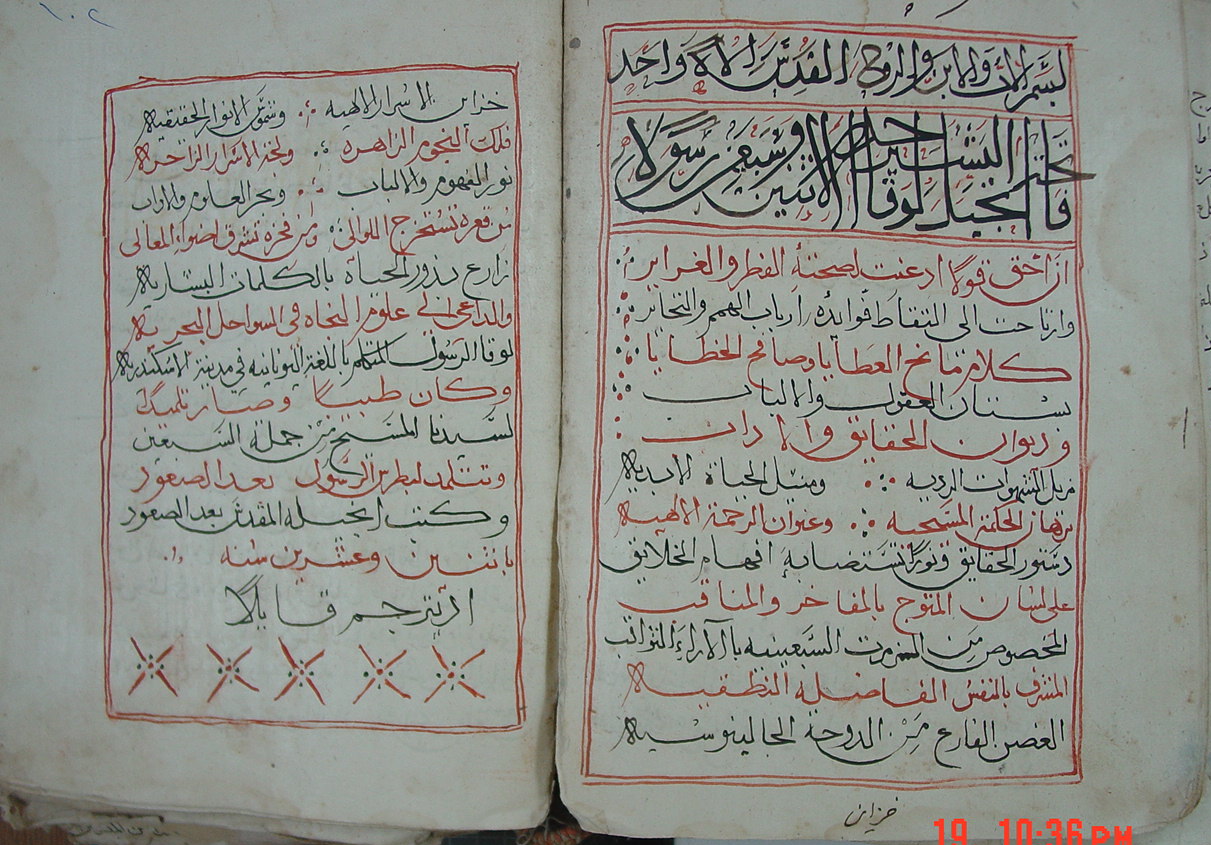 بسم الاب والابن والروح القدس الاه واحد
فاتحة انجيل لوقا البشير احد الاثنين وسبعين رسولا
ان احق قولا ادعنت لصحته الفطر والغراير
وارتاحت الى التقاط فوايده ارباب الهمم والنحاير
كلام مانح العطايا وصافح الخطايا
بستان العقول والالباب
وديوان الحقايق والاداب
مزيل الشهوات الرديه ومنيل الحياة الابدية
برهان الحكمة المسيحيه وعنوان الرحمة الالهية
دستور الحقايق ونورا تستضا به افهام الخلايق
على لسان المتوج بالمفاخر والمناقب
المخصوص من السبعينيه بالآراء الثواقب
المشرف بالنفس الفاضلة النطقية
الغصن الفارع من الدوحة الجالينوسية
خزاين
١٠٢
خزاين الاسرار الالهيه وشموس الانوار الحقيقية
فلك النجوم الزاهره ولجة الاسرار الزاخرة
نور الفهوم والالباب وبحر العلوم والاداب
من قعره تستخرج اللوالئ ومن فجره تشرق اضواء المعالى
زارع بذور الحياة بالكلمات البشارية
والداعى الى علوم النجاه في السواحل البحرية
لوقا الرسول المتكلم باللغة اليونانيه في مدينة الاسكندرية
وكان طبيبا وصار تلميدا
لسيدنا المسيح من جملة السبعين
وتتلمد لبطرس الرسول بعد الصعود
وكتب انجيله المقدس بعد الصعود
باثنين وعشرين سنه
ادا يترجم قايلا
19 10:36 PM